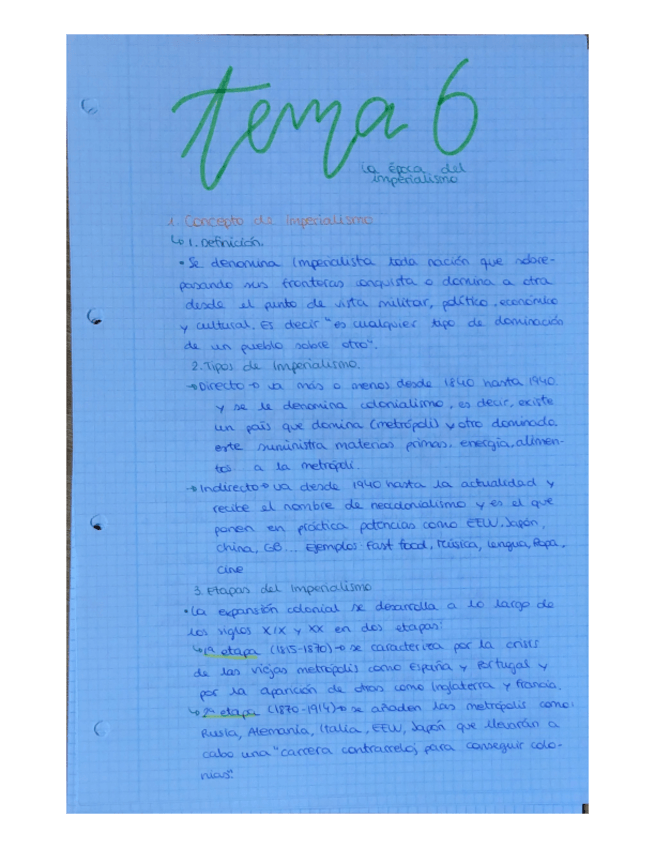 tema 6
La época del
imperialismo
1. Concepto de Imperialismo
↳ 1. Definición.
• Se denomina Imperialista toda nación que sobre-
pasando sus fronteras conquista o domina a otra
desde el punto de vista militar, político, económico
y cultural. Es decir "es cualquier tipo de dominación
de un pueblo sobre otro".
2. Tipos de Imperialismo.
→ Directo → va más o menos desde 1840 hasta 1940
y se le denomina colonialismo, es decir, existe
un país que domina (metrópoli) y otro dominado,
este suministra materias primas, energía, alimen-
tos... a la metrópoli.
→ Indirecto → va desde 1940 hasta la actualidad y
recibe el nombre de neocolonialismo y es el que
ponen en práctica potencias como EEUU, Japón,
China, GB... Ejemplos: Fast food, Música, Lengua, Ropa,
cine
3. Etapas del Imperialismo
• La expansión colonial se desarrolla a lo largo de
los siglos XIX y XX en dos etapas:
↳ 1ª etapa (1815-1870) → se caracteriza por la crisis
de las viejas metrópolis como España y Portugal y
por la aparición de otras como Inglaterra y Francia.
↳ 2ª etapa (1870-1914) → se añaden las metrópolis como:
Rusia, Alemania, Italia, EEUU, Japón que llevarán a
cabo una "carrera contrarreloj para conseguir colo-
nias".